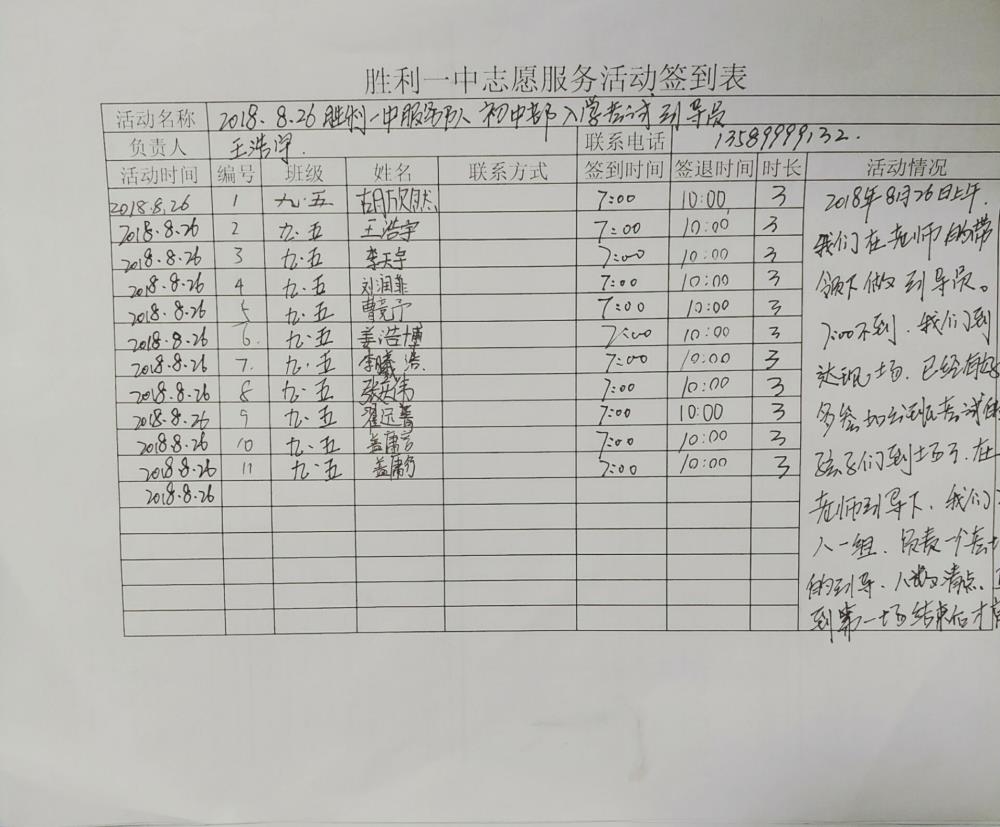 胜利一中志愿服务活动签到表
活动名称 2018.8.26胜利一中服务队初中部入学考试引导员
负责人 王浩宇. 联系电话 13589999132.
活动时间 编号 班级 姓名 联系方式 签到时间 签退时间 时长 活动情况
2018.8.26 1 九.五 胡欣然 7:00 10:00 3
2018.8.26 2 九.五 王浩宇 7:00 10:00 3
2018.8.26 3 九.五 李天宇 7:00 10:00 3
2018.8.26 4 九.五 刘润菲 7:00 10:00 3
2018.8.26 5 九.五 曹竞予 7:00 10:00 3
2018.8.26 6. 九.五 姜浩博 7:00 10:00 3
2018.8.26 7. 九.五 李曦浩 7:00 10:00 3
2018.8.26 8 九.五 张庆伟 7:00 10:00 3
2018.8.26 9 九.五 翟远菁 7:00 10:00 3
2018.8.26 10 九.五 盖庸言 7:00 10:00 3
2018.8.26 11 九.五 盖庸行 7:00 10:00 3
2018.8.26
2018年8月26日上午.
我们在老师的带
领下做引导员。
7:00不到.我们到
达现场.已经有好
多参加分班考试的
孩子们到场了.在
老师引导下.我们
人一组.负责一个考
的引导.人数清点.
到第一场结束后才